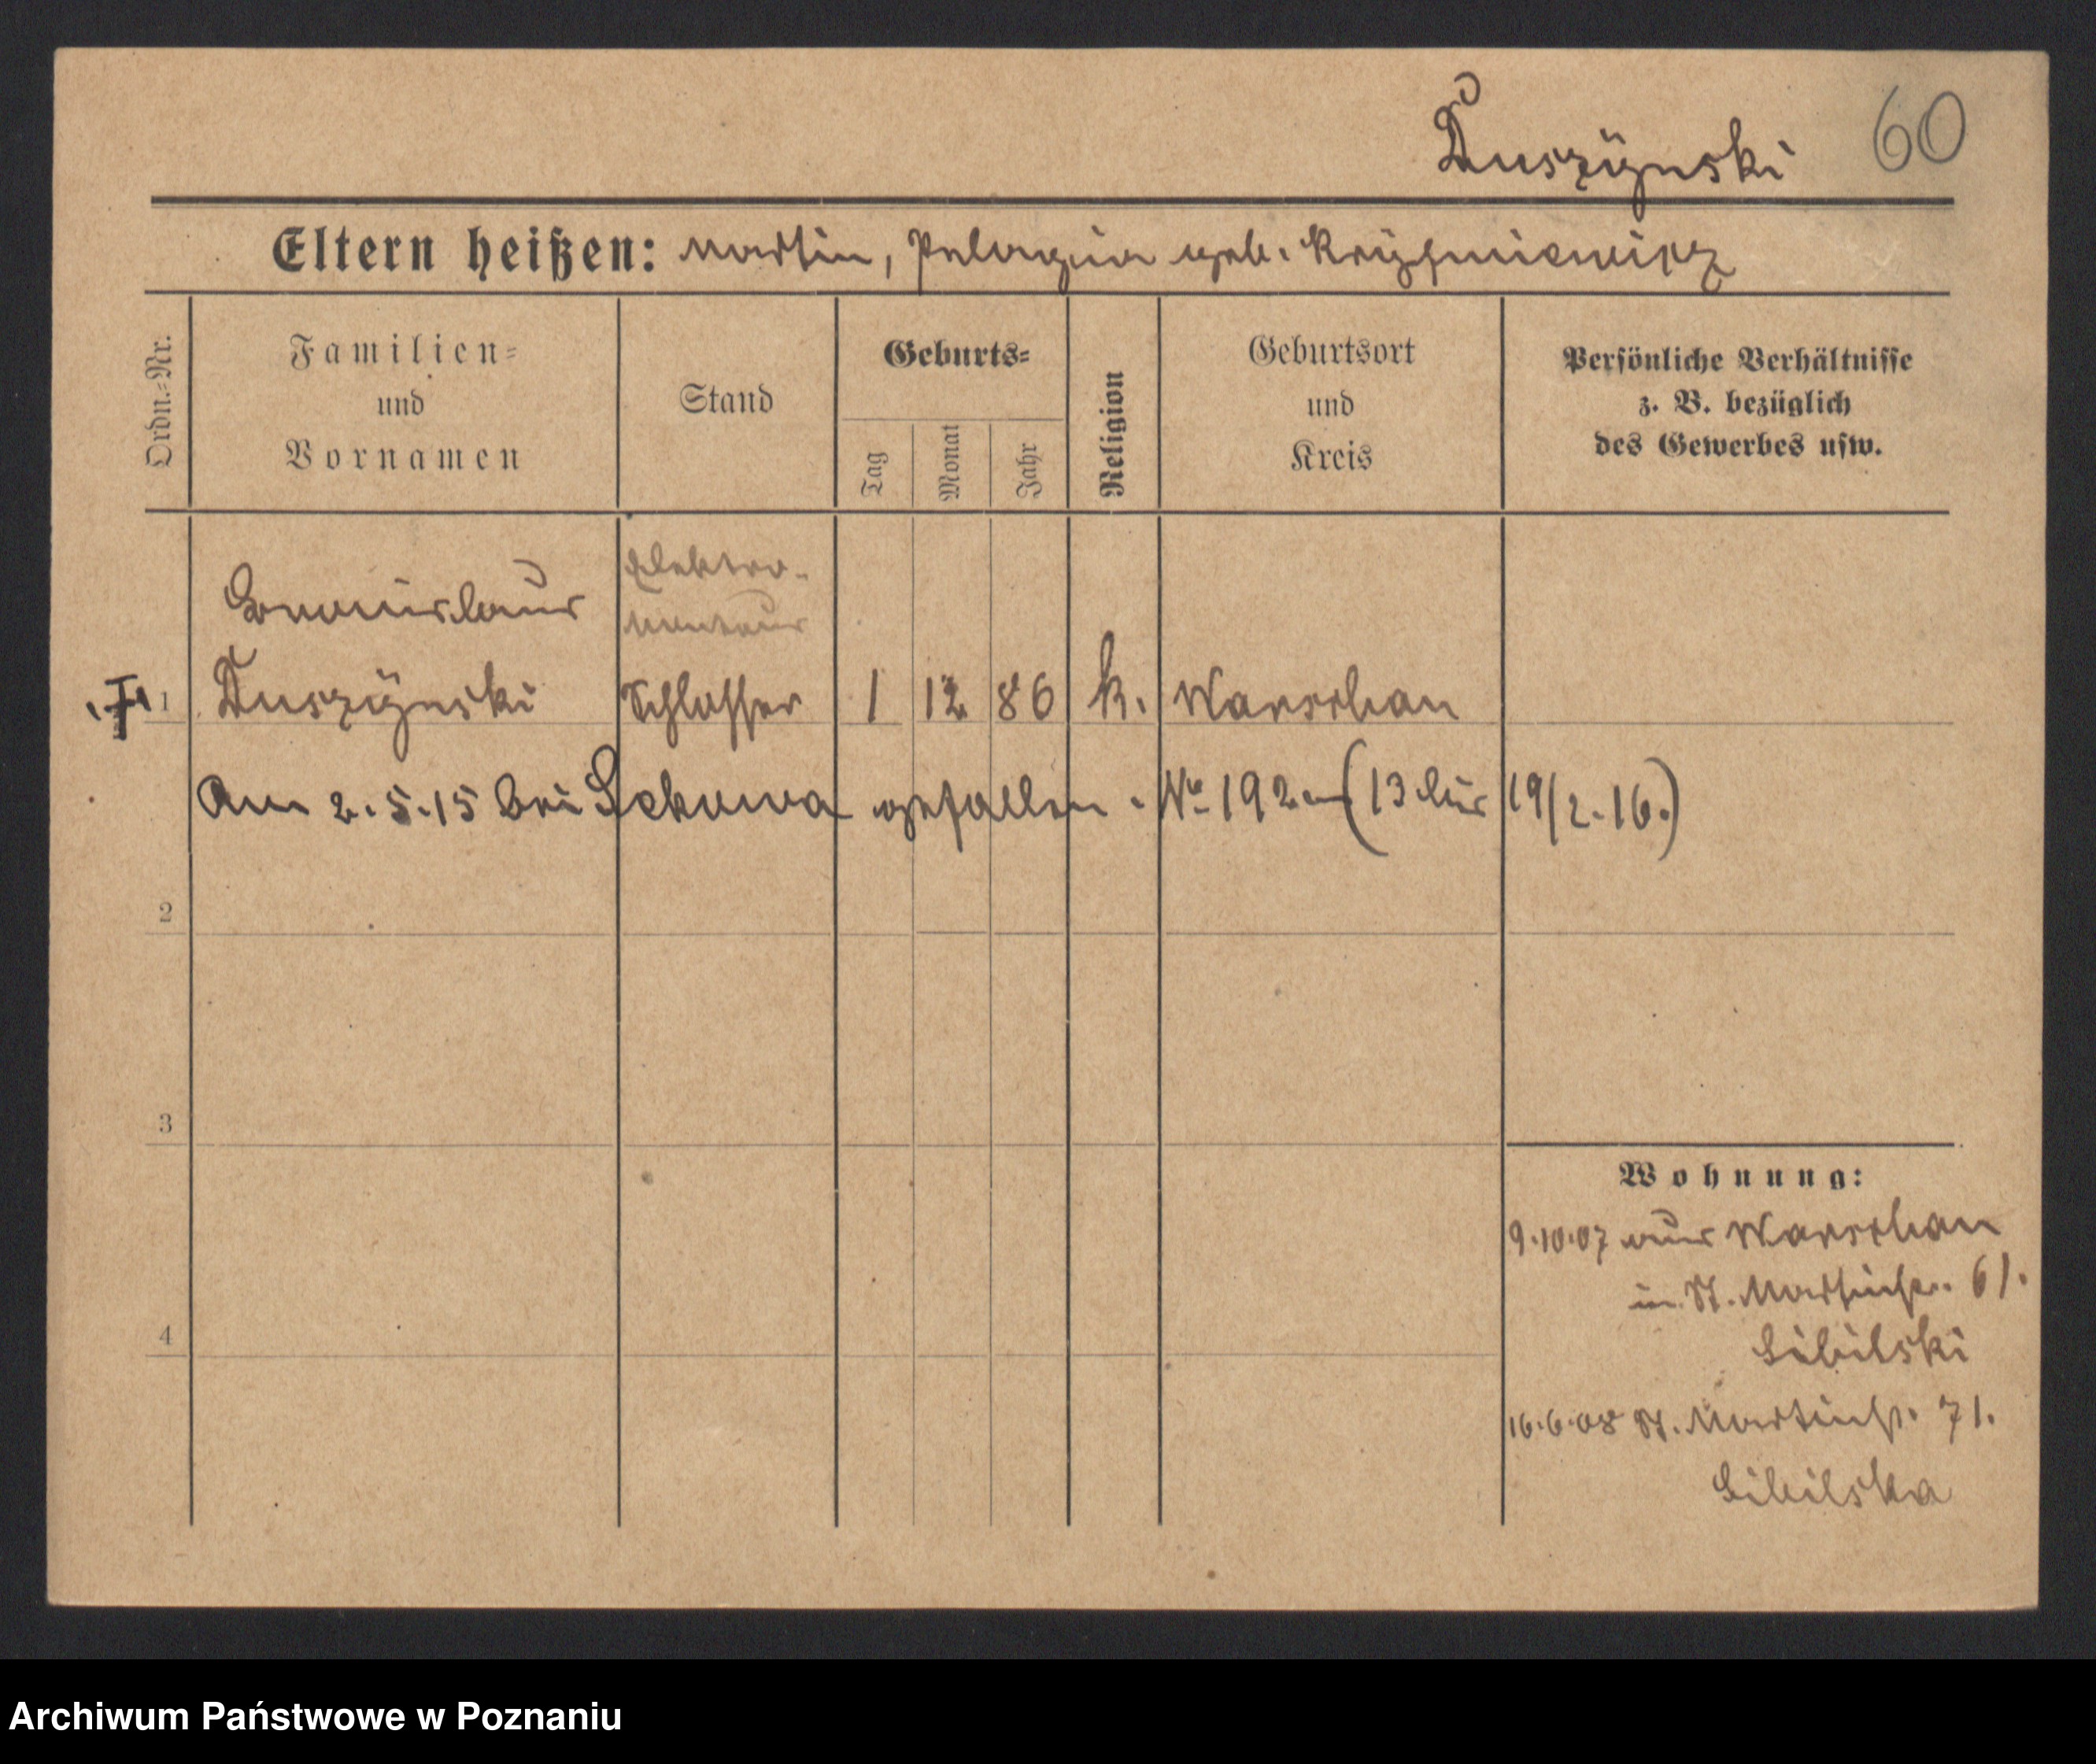 Duszÿnski 60
Eltern heißen: Martin, Pelagia geb. Krÿsmiewicz
Ordn.-Nr.
Familien-
und
Vornamen
Stand
Geburts-
Tag
Monat
Jahr
Religion
Geburtsort
und
Kreis
Persönliche Verhältnisse
z. B. bezüglich
des Gewerbes usw.
Elektro-
monteur
1 Duszÿnski Schlosser 1 12 86 k. Warschau
Am 2.5.15 bei Sekowa gefallen. No 192 (13 19/2.16.)
2
3
4
Wohnung:
9.10.07 aus Warschau
in St. Martinstr. 61.
Bibilski
16.6.08 St. Martinstr. 71.
Bibilska
Archiwum Państwowe w Poznaniu